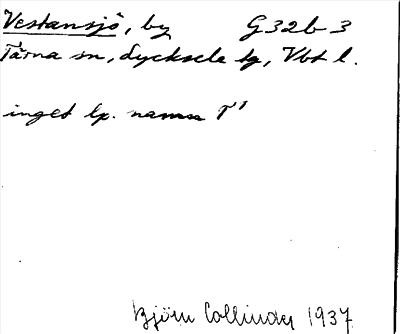 Vestansjö, by G32b3
Tärna sn, Lycksele lg, Vbt l.
inget lp. namn T'
Björn Collinder 1937